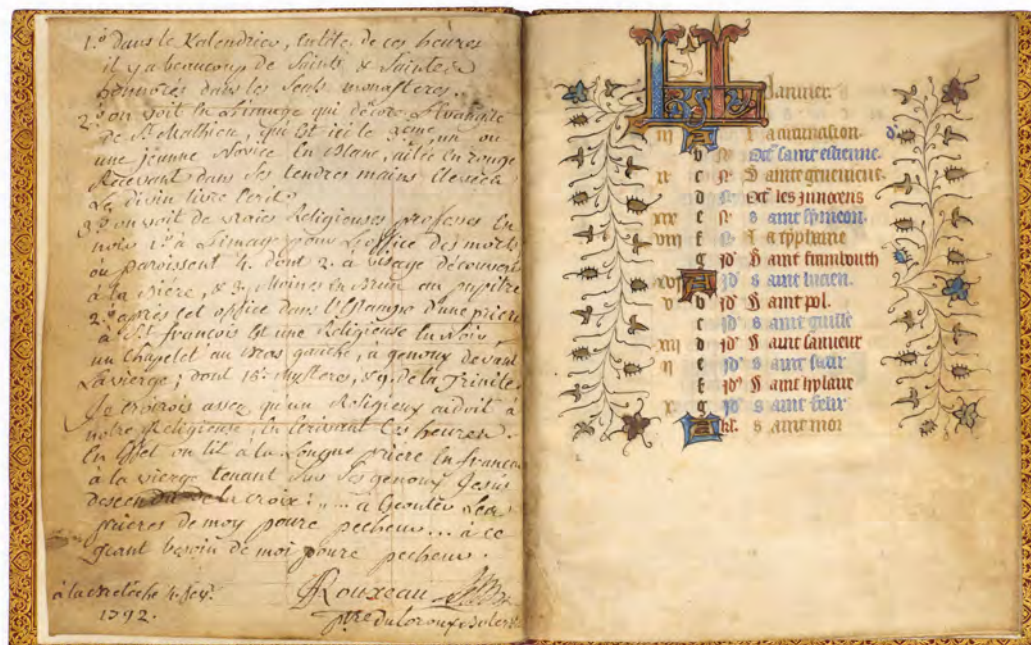 1.° dans le Kalendrier, en tête de ces heures
il y a beaucoup de Saints & Saintes
honorés dans les seuls monasteres.
2.° on voit en L'image qui décore L'Evangile
de St Mathieu, qui est ici le 2eme, un ou
une jeunne Novice En Blanc, ailée en rouge
Recevant dans ses tendres mains élevées
Le divin livre Écrit.
3.° on voit de vraies Religieuses professes En
noir 1.° à L'image pour L'office des morts
où paroissent 4. dont 2. à visage découvert
à la Biére, & 3. Moines en Brun au pupitre
2.° après cet office dans l'Estampe d'une prière
à St françois Est une Religieuse En Noir,
un Chapelet au Bras gauche, à genoux devant
La vierge; dont 15. mysteres, & 9. de la Trinité.
Je croirois assez qu'un Religieux aidoit à
notre Religieuse, En Ecrivant Ces heures.
En Effet on lit à la Longue prière En francais
à la vierge tenant sur ses genoux Jesus
descendu de la croix: „... a Ecouter Les
prieres de moy poure pecheur... à ce
grant besoin de moi poure pecheur.
à la 4.
1792.
Rouxeau
ptre du Loroux
Kl Januier.
iii A La circuncision.
b N Oct saint estienne.
xi c N Sainte geneuieue.
d N Oct les innocens
xix e N saint symeon.
viii f N La typhaine
g id Saint
xvi A id saint lucien.
v b id Saint pol.
c id saint guille
xiii d id Saint sauueur
ii e id saint
f id Saint hylaire
x g id saint felix
A kl saint mor